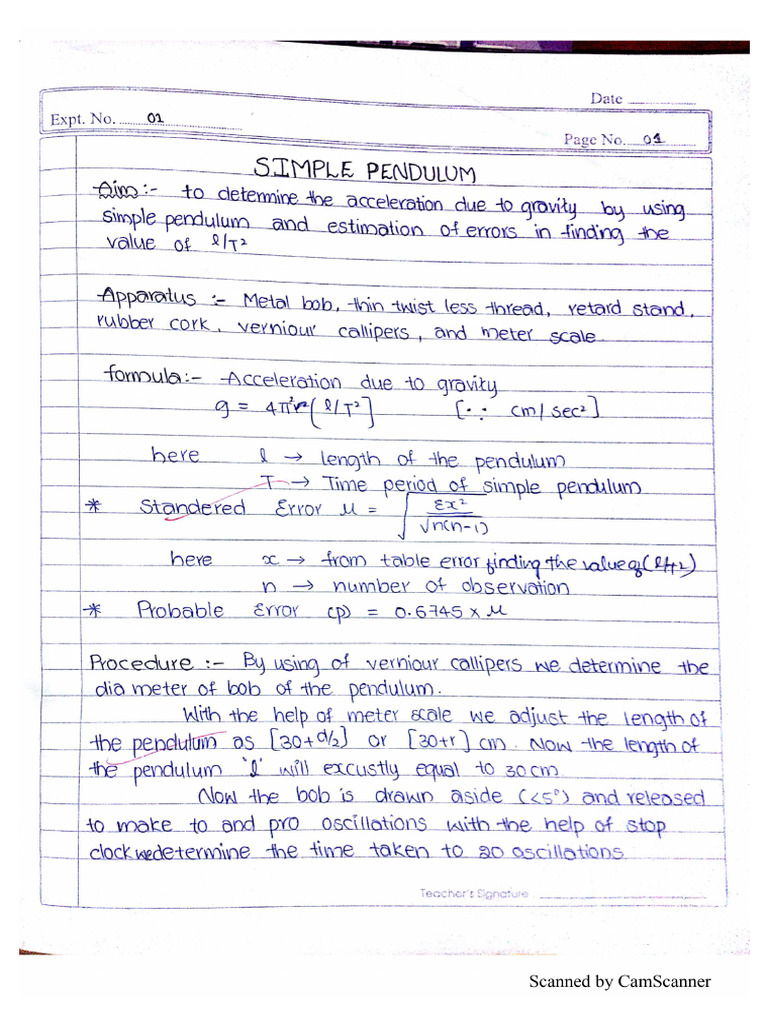 Date
Expt. No. 01
Page No. 01
SIMPLE PENDULUM
Aim:- to determine the acceleration due to gravity by using
simple pendulum and estimation of errors in finding the
value of l/T²
Apparatus :- Metal bob, thin twist less thread, retard stand,
rubber cork, verniour callipers, and meter scale
formula:- Acceleration due to gravity
g = 4π² (l/T²] [∵ cm/sec²]
here l → length of the pendulum
T → Time period of simple pendulum
* Standered Error μ = √ Ɛx² / √n(n-1)
here x → from table error finding the value of (l/T2)
n → number of observation
* Probable Error (p) = 0.6745 x μ
Procedure :- By using of verniour callipers we determine the
dia meter of bob of the pendulum.
With the help of meter scale we adjust the length of
the pendulum as [30+d/2] or [30+r] cm. Now the length of
the pendulum 'l' will excustly equal to 30cm
Now the bob is drawn aside (<5°) and released
to make to and pro oscillations with the help of stop
clock we determine the time taken to 20 oscillations.
Teacher's Signature
Scanned by CamScanner